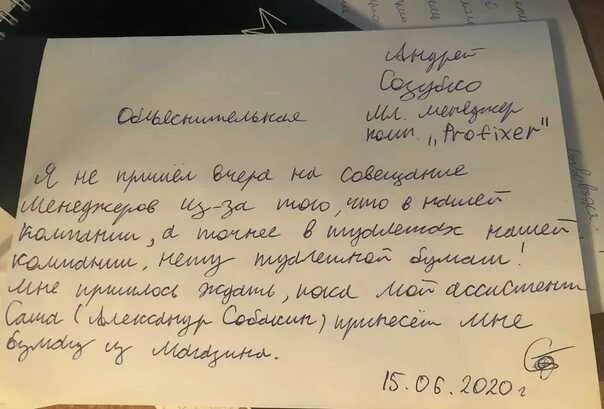 Андрей
Созубко
Мл. менеджер
комп. „Profixer"
Объеснительная
Я не пришёл вчера на совещание
менеджеров из-за того, что в нашей
компании, а точнее в туалетах нашей
компании, нету туалетной бумаги!
Мне пришлось ждать, пока мой ассистент
Саша (Александр Собакин) принесёт мне
бумагу из магазина.
15.06.2020г